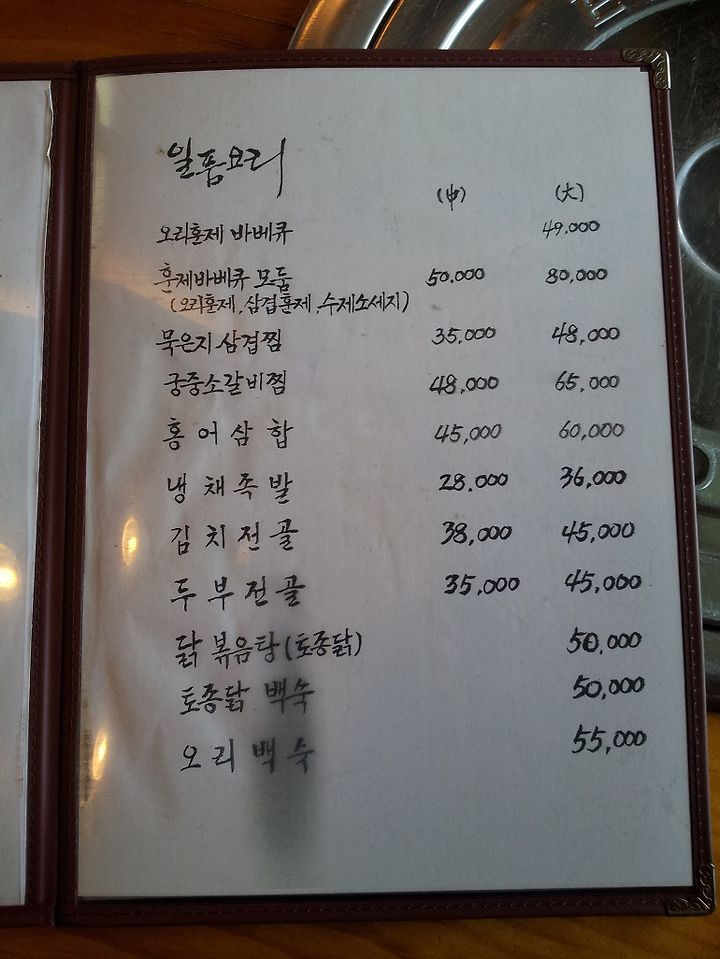 일품요리
(中) (大)
오리훈제 바베큐 49,000
훈제바베큐 모둠 50,000 80,000
(오리훈제, 삼겹훈제, 수제소세지)
묵은지삼겹찜 35,000 48,000
궁중소갈비찜 48,000 65,000
홍어삼합 45,000 60,000
냉채족발 28,000 36,000
김치전골 38,000 45,000
두부전골 35,000 45,000
닭볶음탕(토종닭) 50,000
토종닭 백숙 50,000
오리백숙 55,000